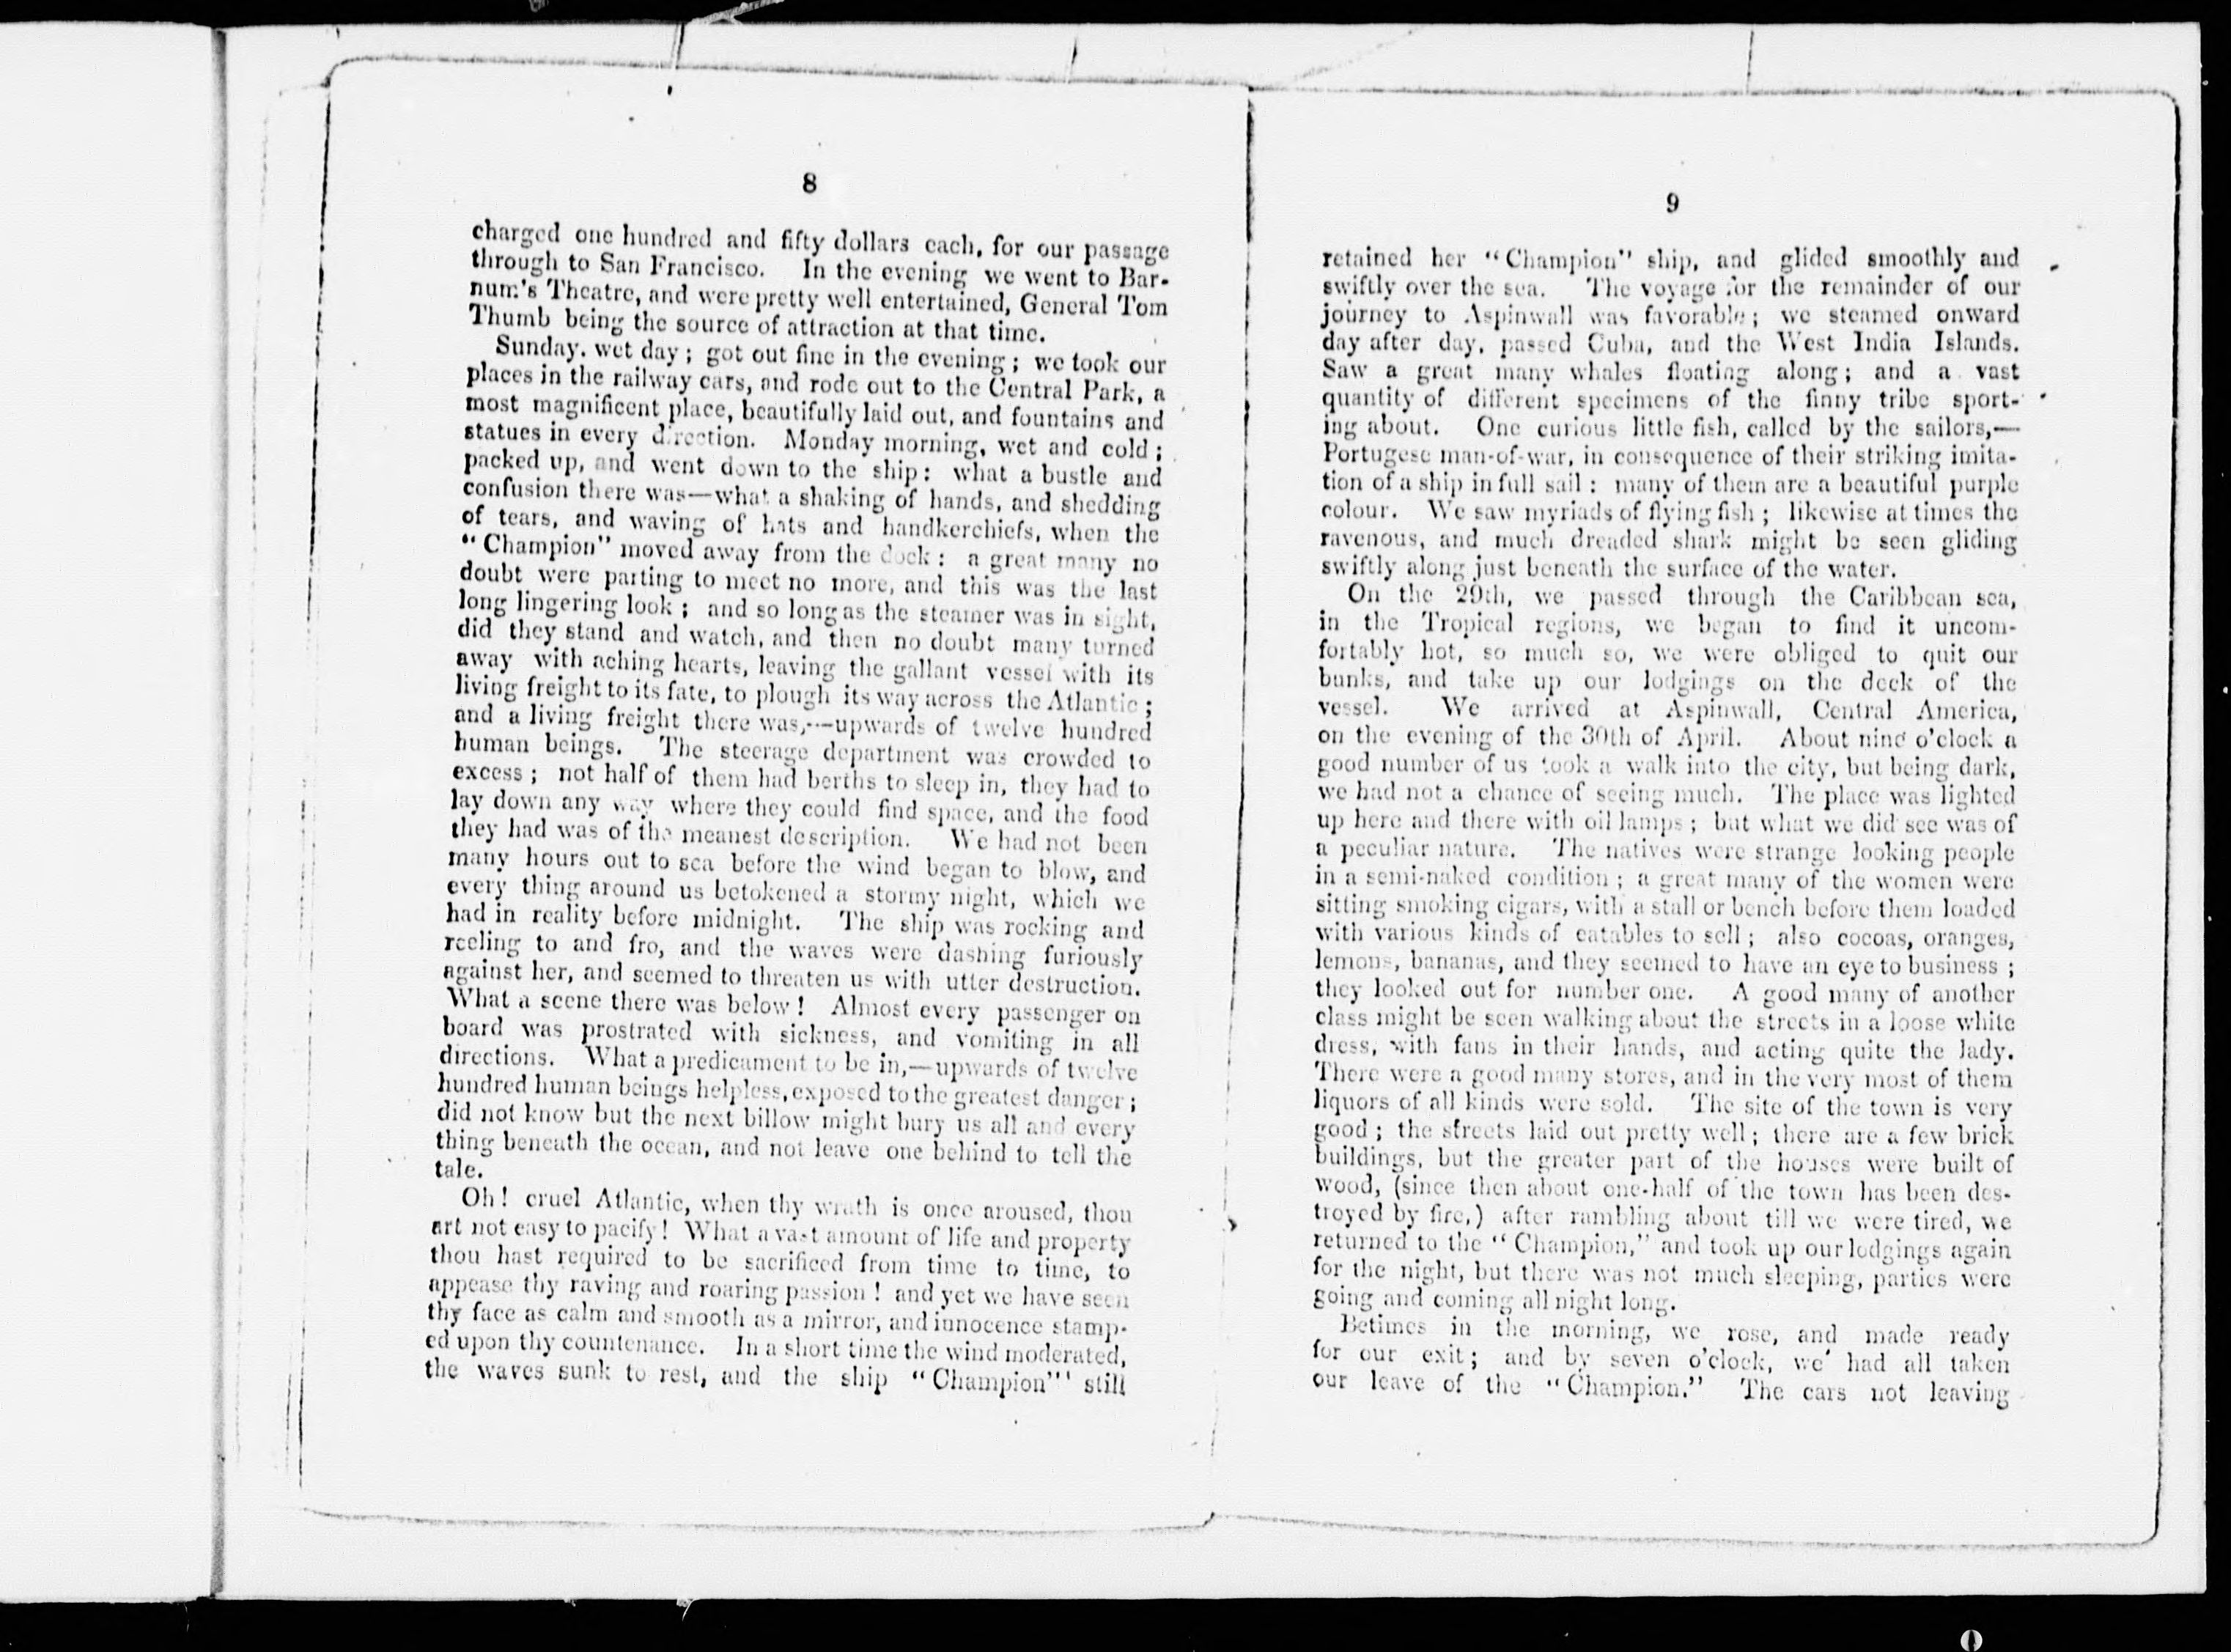 8
charged one hundred and fifty dollars each, for our passage
through to San Francisco. In the evening we went to Bar-
num's Theatre, and were pretty well entertained, General Tom
Thumb being the source of attraction at that time.
Sunday. wet day; got out fine in the evening; we took our
places in the railway cars, and rode out to the Central Park, a
most magnificent place, beautifully laid out, and fountains and
statues in every direction. Monday morning, wet and cold;
packed up, and went down to the ship: what a bustle and
confusion there was—what a shaking of hands, and shedding
of tears, and waving of hats and handkerchiefs, when the
"Champion" moved away from the dock: a great many no
doubt were parting to meet no more, and this was the last
long lingering look; and so long as the steamer was in sight,
did they stand and watch, and then no doubt many turned
away with aching hearts, leaving the gallant vessel with its
living freight to its fate, to plough its way across the Atlantic;
and a living freight there was,—upwards of twelve hundred
human beings. The steerage department was crowded to
excess; not half of them had berths to sleep in, they had to
lay down any way where they could find space, and the food
they had was of the meanest description. We had not been
many hours out to sea before the wind began to blow, and
every thing around us betokened a stormy night, which we
had in reality before midnight. The ship was rocking and
reeling to and fro, and the waves were dashing furiously
against her, and seemed to threaten us with utter destruction.
What a scene there was below! Almost every passenger on
board was prostrated with sickness, and vomiting in all
directions. What a predicament to be in,—upwards of twelve
hundred human beings helpless, exposed to the greatest danger;
did not know but the next billow might bury us all and every
thing beneath the ocean, and not leave one behind to tell the
tale.
Oh! cruel Atlantic, when thy wrath is once aroused, thou
art not easy to pacify! What a vast amount of life and property
thou hast required to be sacrificed from time to time, to
appease thy raving and roaring passion! and yet we have seen
thy face as calm and smooth as a mirror, and innocence stamp-
ed upon thy countenance. In a short time the wind moderated,
the waves sunk to rest, and the ship "Champion"' still
9
retained her "Champion" ship, and glided smoothly and
swiftly over the sea. The voyage for the remainder of our
journey to Aspinwall was favorable; we steamed onward
day after day, passed Cuba, and the West India Islands.
Saw a great many whales floating along; and a vast
quantity of different specimens of the finny tribe sport-
ing about. One curious little fish, called by the sailors,—
Portugese man-of-war, in consequence of their striking imita-
tion of a ship in full sail: many of them are a beautiful purple
colour. We saw myriads of flying fish; likewise at times the
ravenous, and much dreaded shark might be seen gliding
swiftly along just beneath the surface of the water.
On the 29th, we passed through the Caribbean sea,
in the Tropical regions, we began to find it uncom-
fortably hot, so much so, we were obliged to quit our
bunks, and take up our lodgings on the deck of the
vessel. We arrived at Aspinwall, Central America,
on the evening of the 30th of April. About nine o'clock a
good number of us took a walk into the city, but being dark,
we had not a chance of seeing much. The place was lighted
up here and there with oil lamps; but what we did see was of
a peculiar nature. The natives were strange looking people
in a semi-naked condition; a great many of the women were
sitting smoking cigars, with a stall or bench before them loaded
with various kinds of eatables to sell; also cocoas, oranges,
lemons, bananas, and they seemed to have an eye to business;
they looked out for number one. A good many of another
class might be seen walking about the streets in a loose white
dress, with fans in their hands, and acting quite the lady.
There were a good many stores, and in the very most of them
liquors of all kinds were sold. The site of the town is very
good; the streets laid out pretty well; there are a few brick
buildings, but the greater part of the houses were built of
wood, (since then about one-half of the town has been des-
troyed by fire,) after rambling about till we were tired, we
returned to the "Champion," and took up our lodgings again
for the night, but there was not much sleeping, parties were
going and coming all night long.
Betimes in the morning, we rose, and made ready
for our exit; and by seven o'clock, we had all taken
our leave of the "Champion." The cars not leaving